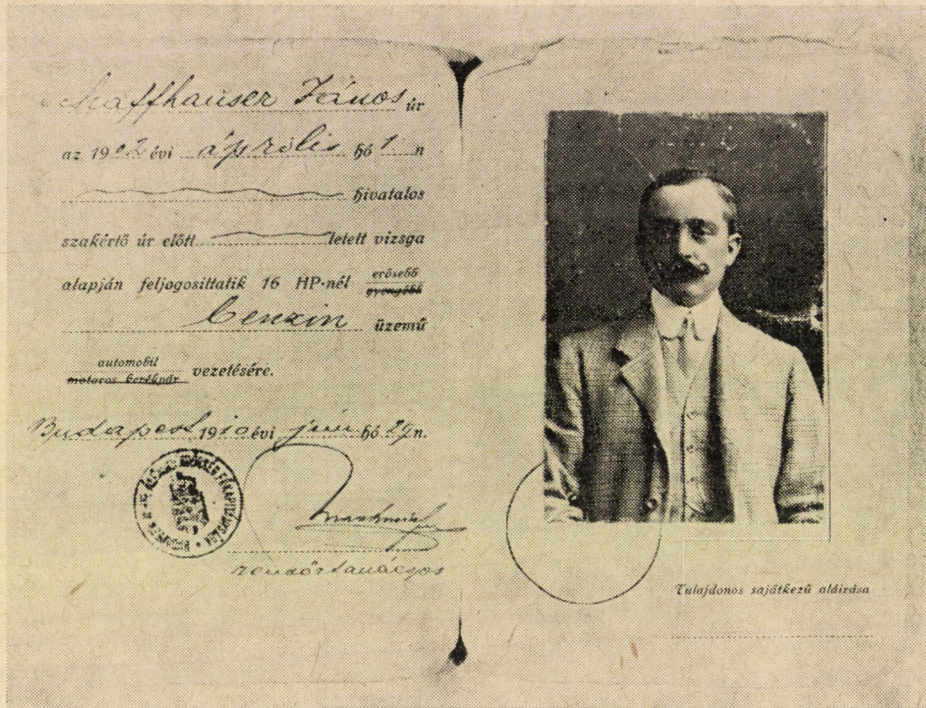 Schaffhauser János úr
az 1902 évi április hó 1 n
hivatalos
szakértő úr előtt letett vizsga
alapján feljogosittatik 16 HP-nél erősebb
gyengébb
benzin üzemű
automobil
motoros kerékpár vezetésére.
Budapest 1910 évi juni hó 29 n.
rendőrtanácsos
Tulajdonos sajátkezű aláirása